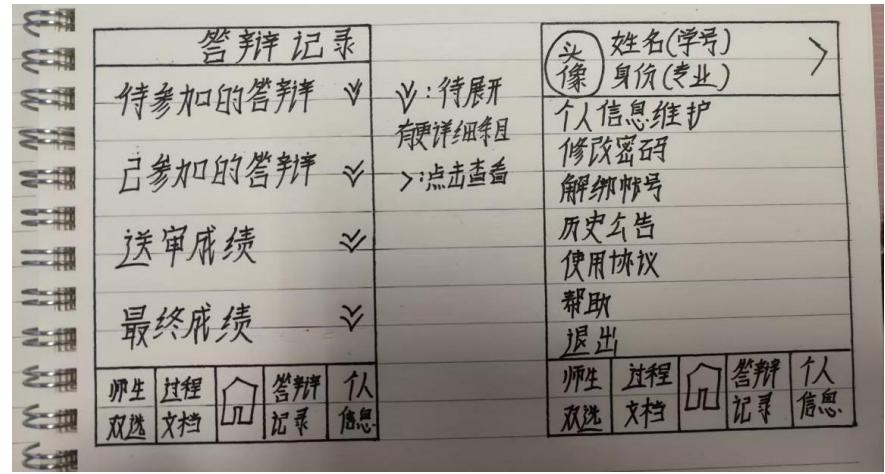 答辩记录
待参加的答辩
已参加的答辩
送审成绩
最终成绩
师生双选
过程文档
答辩记录
个人信息
：待展开
有更详细条目
>:点击查看
头像
姓名(学号)
身份(专业)
>
个人信息维护
修改密码
解绑帐号
历史公告
使用协议
帮助
退出
师生双选
过程文档
答辩记录
个人信息